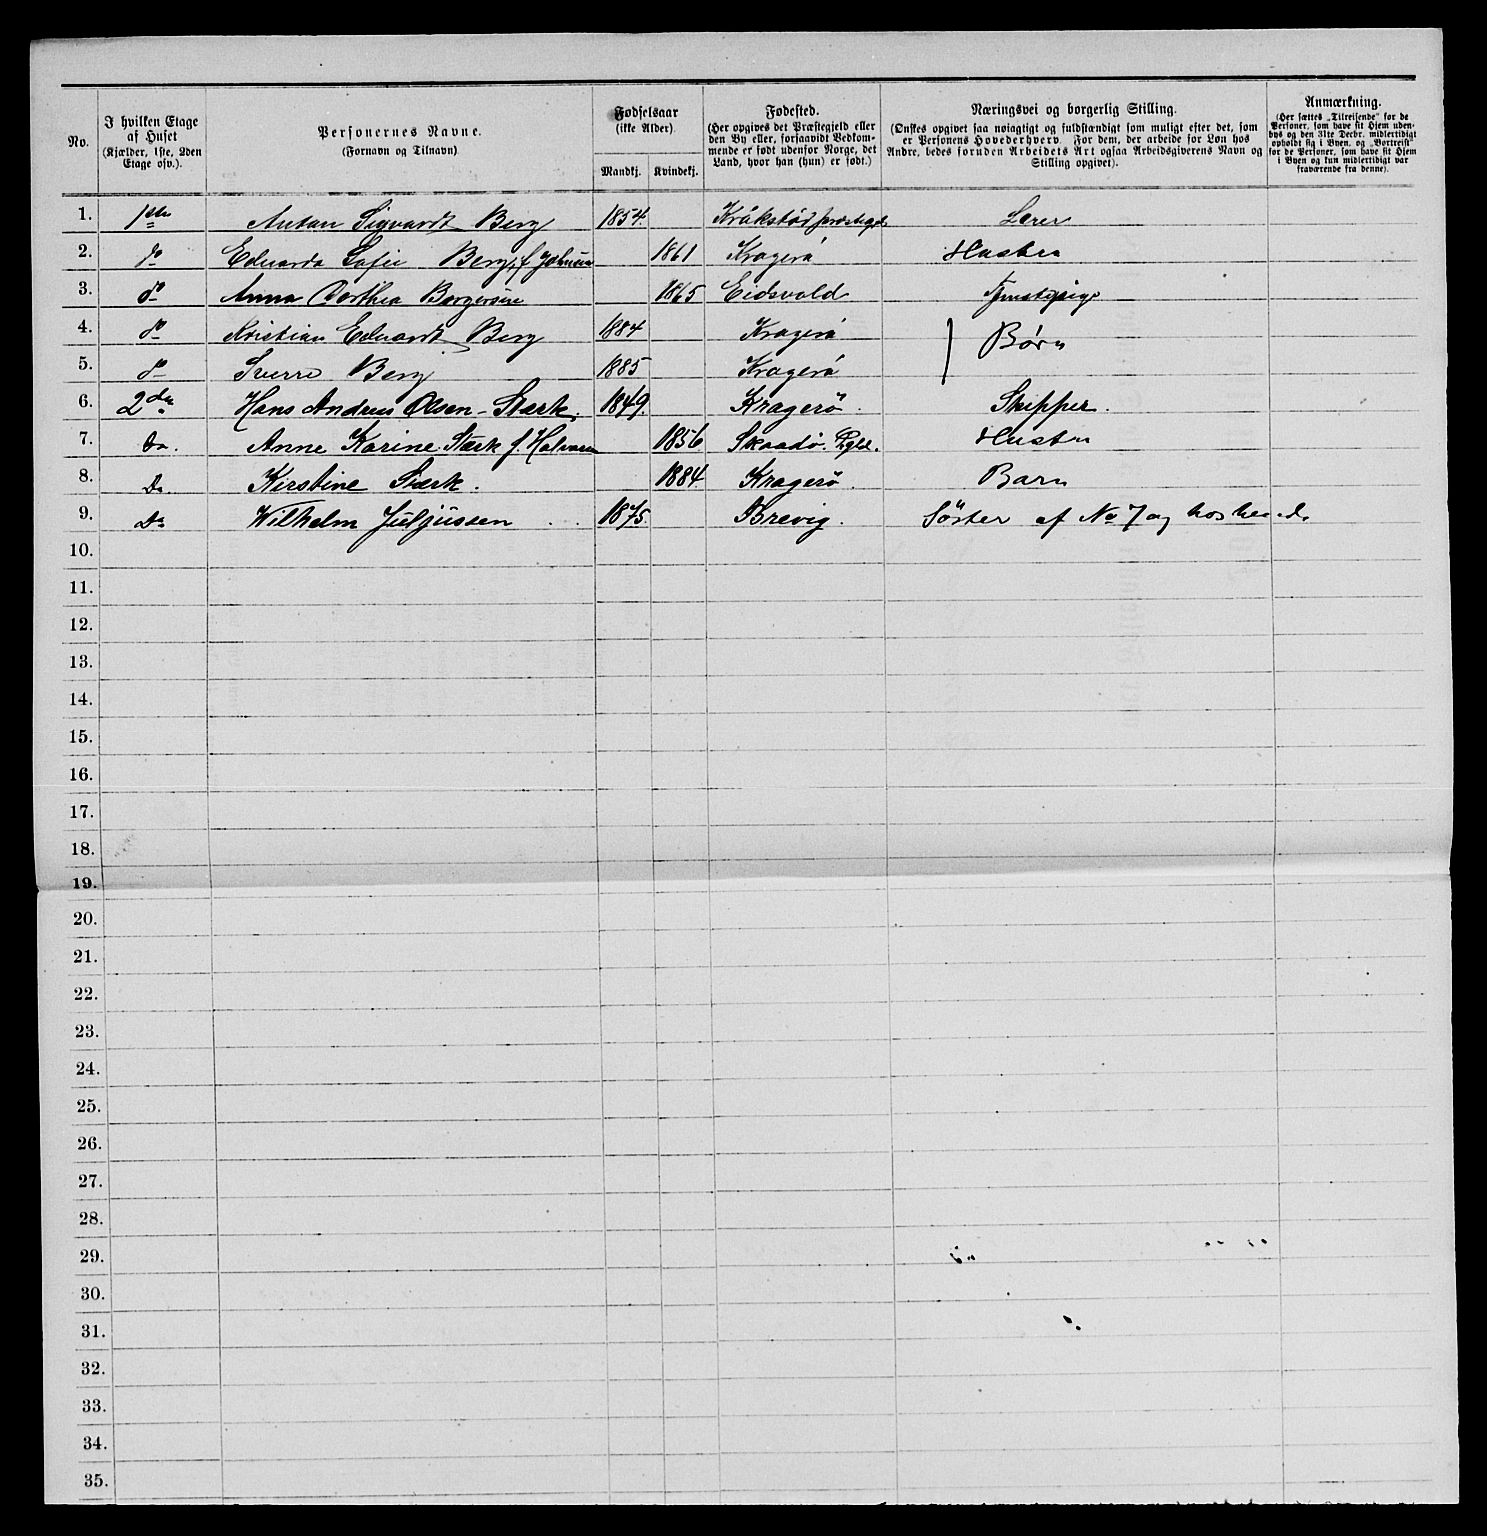 No.
I hvilken Etage af Huset (Kjælder, 1ste, 2den Etage osv.).
Personernes Navne. (Fornavn og Tilnavn)
Fødselsaar (ikke Alder)
Mandkj. Kvindekj.
Fødested. (Her opgives det Præstegjeld eller den By eller, forsaavidt Vedkommende er født udenfor Norge, det Land, hvor han (hun) er født.)
Næringsvei og borgerlig Stilling. (Ønskes opgivet saa nøiagtigt og fuldstændigt som muligt efter det, som er Personens Hovederhverv. For dem, der arbeide for Løn hos Andre, bedes foruden Arbeidets Art ogsaa Arbeidsgiverens Navn og Stilling opgivet).
Anmærkning. (Her sættes „Tilreisende“ for de Personer, som have sit Hjem udenbys og den 31te Decbr. midlertidigt opholdt sig i Byen, og „Bortreist“ for de Personer, som have sit Hjem i Byen og kun midlertidigt var fraværende fra denne).
1. 1ste Anton Sigvardt Berg 1854. Kråkstad præstegd.
2. do Eduarda Sofie Berg, f Johnsen 1861 Kragerø Hustru
3. do Anna Dorthea Borgersen 1865 Eidsvold Tjenestepige
4. do Kristian Eduardt Berg 1884 Kragerø } Børn
5. do Sverre Berg 1885 Kragerø
6. 2den Hans Andreas Olsen-Stærk. 1849. Kragerø. Skipper.
7. Do. Anne Karine Stærk f. Halvorsen 1856 Skaadø. Pgld. Hustru
8. Do. Kirstine Stærk. 1884 Kragerø. Barn
9. Do Wilhelm Juljussen 1875. Brevig. Söster af No 7 og hos
10.
11.
12.
13.
14.
15.
16.
17.
18.
19.
20.
21.
22.
23.
24.
25.
26.
27.
28.
29.
30.
31.
32.
33.
34.
35.